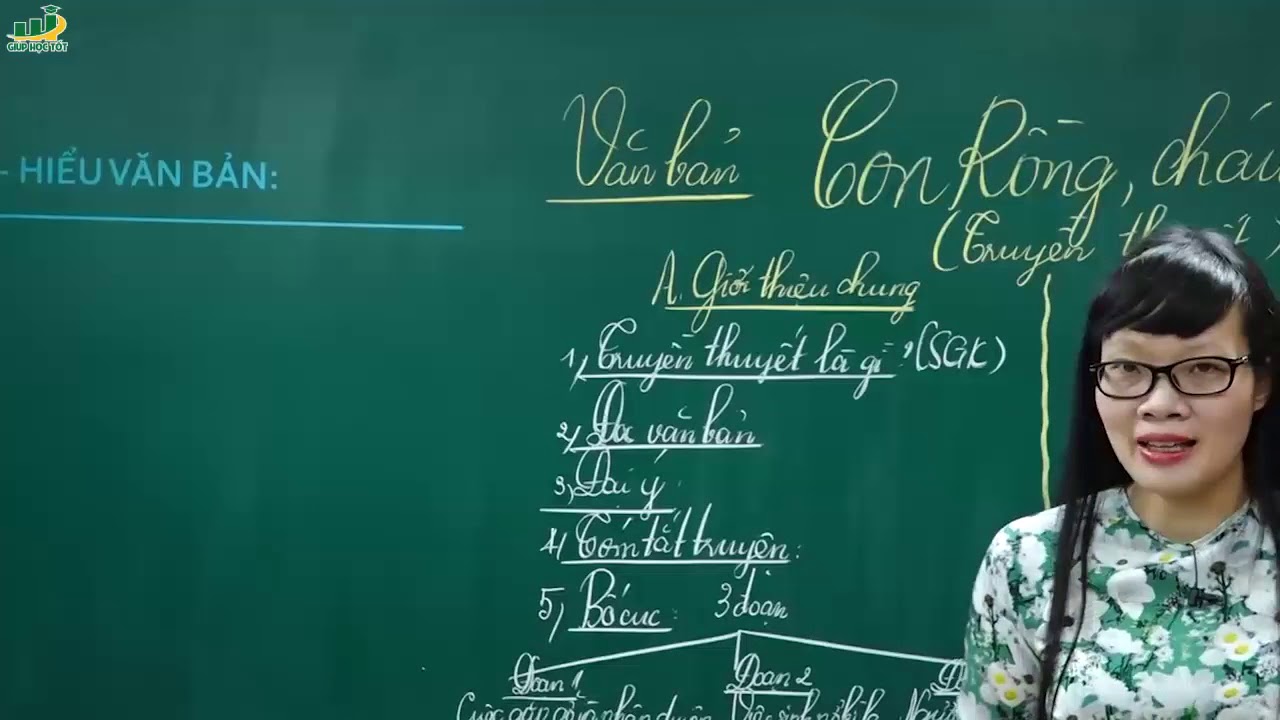 GIÚP HỌC TỐT
- HIỂU VĂN BẢN:
Văn bản Con Rồng, cháu
(Truyền thuyết)
A. Giới thiệu chung
1, Truyền thuyết là gì? (SGK)
2, Đọc văn bản
3, Đại ý
4, Tóm tắt truyện:
5, Bố cục: 3 đoạn
Đoạn 1 Đoạn 2 Đ
Cuộc gặp gỡ và nhân duyên